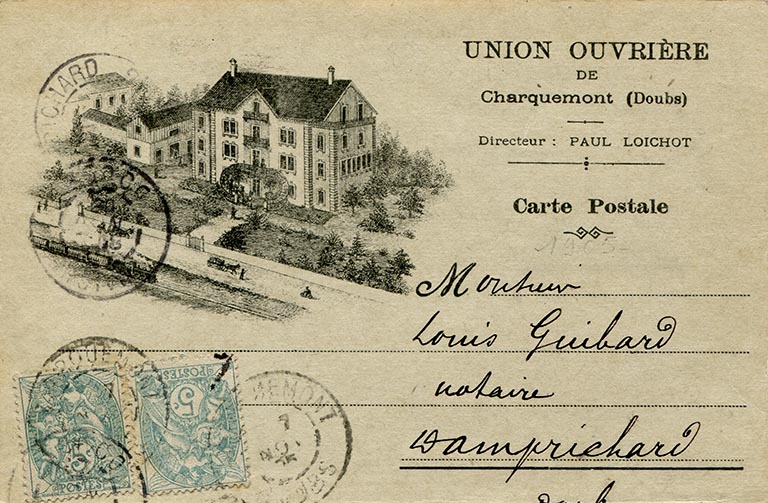 UNION OUVRIÈRE
DE
Charquemont (Doubs)
Directeur : PAUL LOICHOT
Carte Postale
Monsieur
Louis Guibard
notaire
Damprichard
POSTES
5
POSTES
5